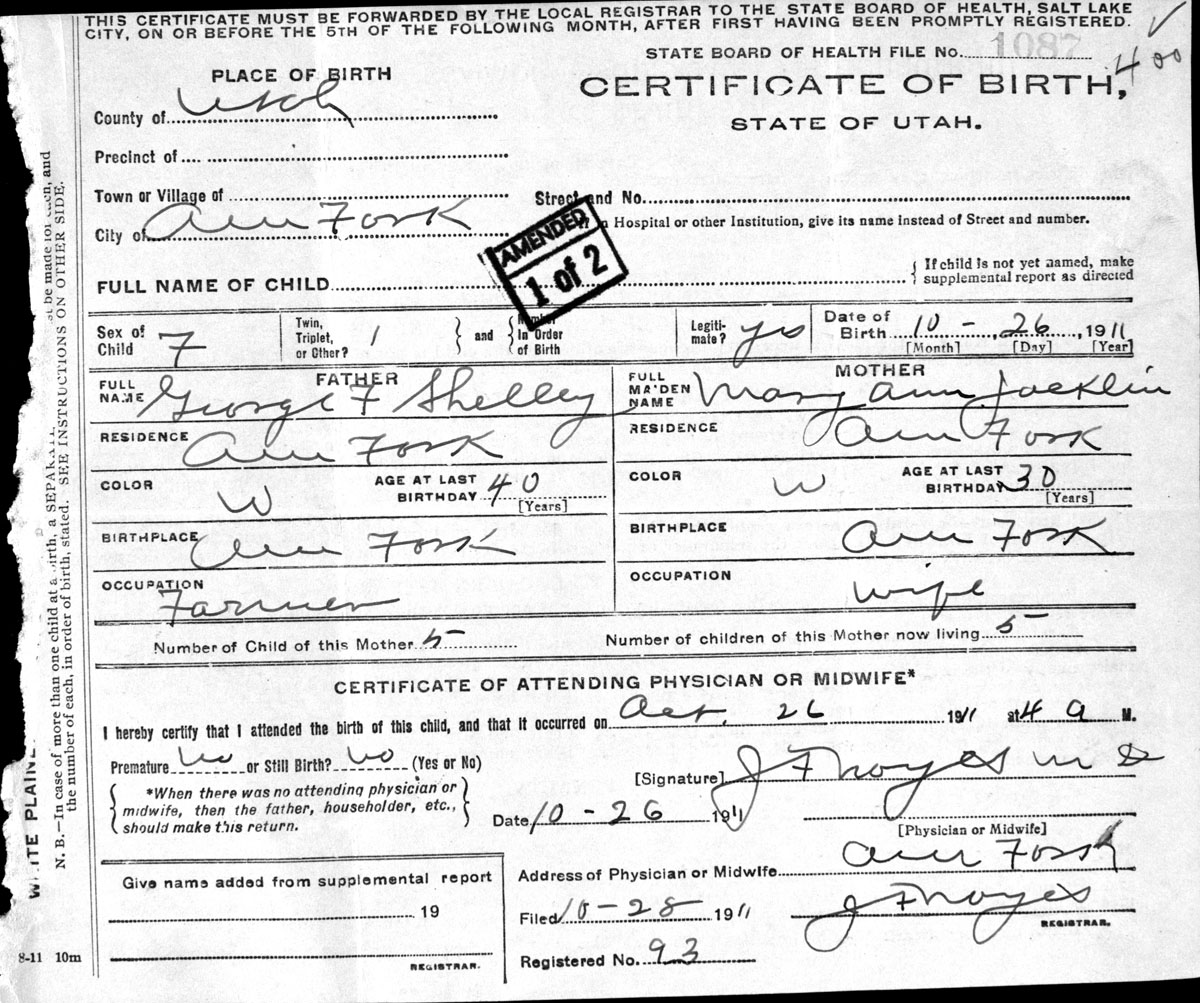 THIS CERTIFICATE MUST BE FORWARDED BY THE LOCAL REGISTRAR TO THE STATE BOARD OF HEALTH, SALT LAKE
CITY, ON OR BEFORE THE 5TH OF THE FOLLOWING MONTH, AFTER FIRST HAVING BEEN PROMPTLY REGISTERED.
STATE BOARD OF HEALTH FILE No. 1087
400
PLACE OF BIRTH
CERTIFICATE OF BIRTH,
STATE OF UTAH.
County of Utah
Precinct of
Town or Village of
Street and No.
City of Am Fork
Hospital or other Institution, give its name instead of Street and number.
AMENDED
1 of 2
FULL NAME OF CHILD
If child is not yet named, make
supplemental report as directed
Sex of Child F
Twin, Triplet, or Other? 1
and
Number In Order of Birth
Legiti-mate? yes
Date of Birth 10 - 26, 1911
[Month] [Day] [Year]
FATHER
FULL NAME George F Shelley
MOTHER
FULL MAIDEN NAME Mary Ann Jacklin
RESIDENCE Am Fork
RESIDENCE Am Fork
COLOR W
AGE AT LAST BIRTHDAY 40
[Years]
COLOR W
AGE AT LAST BIRTHDAY 30
[Years]
BIRTHPLACE Am Fork
BIRTHPLACE Am Fork
OCCUPATION
Farmer
OCCUPATION
wife
Number of Child of this Mother 5
Number of children of this Mother now living 5
CERTIFICATE OF ATTENDING PHYSICIAN OR MIDWIFE*
I hereby certify that I attended the birth of this child, and that it occurred on Oct. 26 1911 at 4 a M.
Premature no or Still Birth? no (Yes or No)
[Signature] J F Noyes M D
*When there was no attending physician or
midwife, then the father, householder, etc.,
should make this return.
Date 10 - 26 1911
[Physician or Midwife]
Address of Physician or Midwife Am Fork
Give name added from supplemental report
19
REGISTRAR.
Filed 10 - 28 1911
J F Noyes
REGISTRAR.
Registered No. 93
8-11 10m
WRITE PLAINL
N. B.—In case of more than one child at a birth, a SEPARATE
be made for each, and
the number of each, in order of birth, stated. SEE INSTRUCTIONS ON OTHER SIDE.